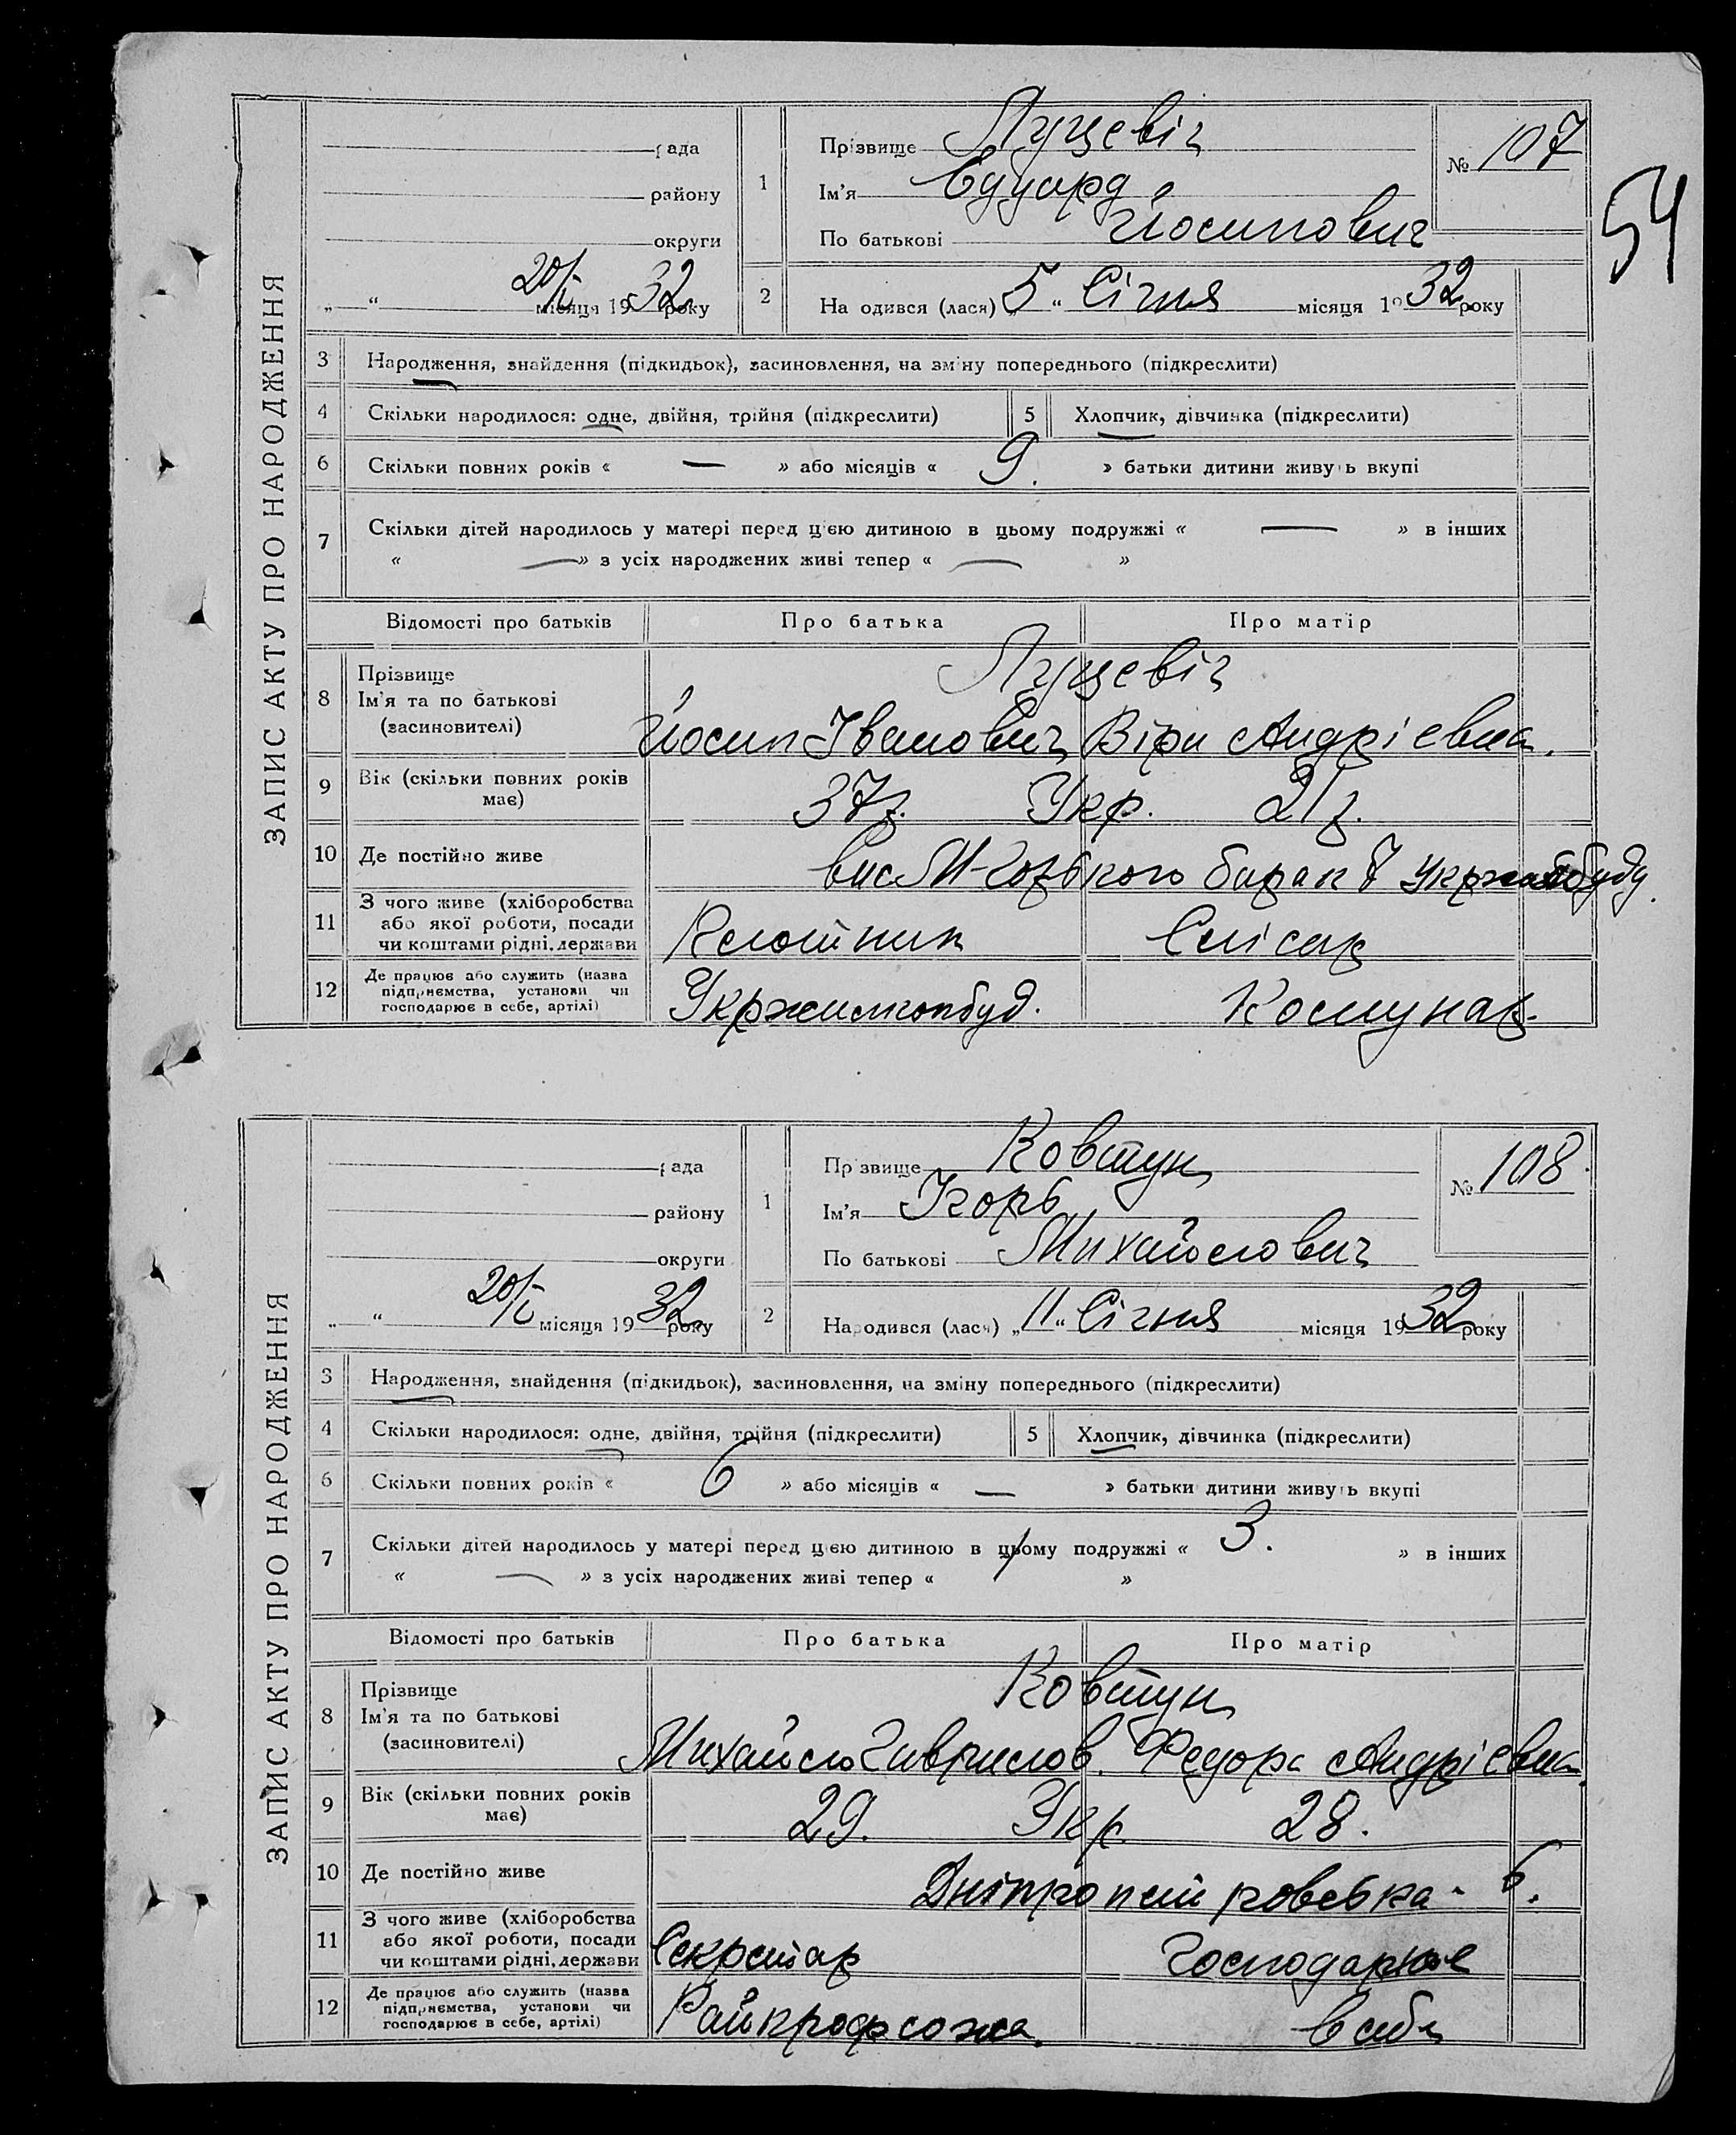 54
ЗАПИС АКТУ ПРО НАРОДЖЕННЯ
рада
району
округи
„ “ 20/I місяця 1932 року
1
Прізвище Луцевіч
Ім’я Едуард
По батькові Йосипович
№ 107
2
На одився (лася) „5“ Січня місяця 1932 року
3 Народження, знайдення (підкидьок), засиновлення, на зміну попереднього (підкреслити)
4 Скільки народилося: одне, двійня, трійня (підкреслити) 5 Хлопчик, дівчинка (підкреслити)
6 Скільки повних років « — » або місяців « 9. » батьки дитини живуть вкупі
7 Скільки дітей народилось у матері перед цією дитиною в цьому подружжі « — » в інших
« — » з усіх народжених живі тепер « — »
Відомості про батьків Про батька Про матір
8 Прізвище
Ім’я та по батькові
(засиновителі)
Луцевіч
Йосип Іванович Віра Андрієвна.
9 Вік (скільки повних років має)
37р. Укр. 21р.
10 Де постійно живе
барак 7
11 З чого живе (хліборобства
або якої роботи, посади
чи коштами рідні, держави
Плотник Слісар
12 Де працює або служить (назва
підприємства, установи чи
господарює в себе, артілі)
Укржилкопбуд. Комунар.
ЗАПИС АКТУ ПРО НАРОДЖЕННЯ
рада
району
округи
„ “ 20/I місяця 1932 року
1
Пр звище Ковтун
Ім’я Ігорь
По батькові Михайлович
№ 108.
2
Народився (лася) „11“ Січня місяця 1932 року
3 Народження, знайдення (підкидьок), засиновлення, на зміну попереднього (підкреслити)
4 Скільки народилося: одне, двійня, трійня (підкреслити) 5 Хлопчик, дівчинка (підкреслити)
6 Скільки повних років « 6 » або місяців « — » батьки дитини живуть вкупі
7 Скільки дітей народилось у матері перед цією дитиною в цьому подружжі « 3. » в інших
« — » з усіх народжених живі тепер « 1 »
Відомості про батьків Про батька Про матір
8 Прізвище
Ім’я та по батькові
(засиновителі)
Ковтун
Михайло Гаврилов. Федора Андрієвна.
9 Вік (скільки повних років має)
29. Укр. 28.
10 Де постійно живе
Дніпропетровська - 6.
11 З чого живе (хліборобства
або якої роботи, посади
чи коштами рідні, держави
Секретар Господарює
12 Де працює або служить (назва
підприємства, установи чи
господарює в себе, артілі)
Райпрофсожа. в себе